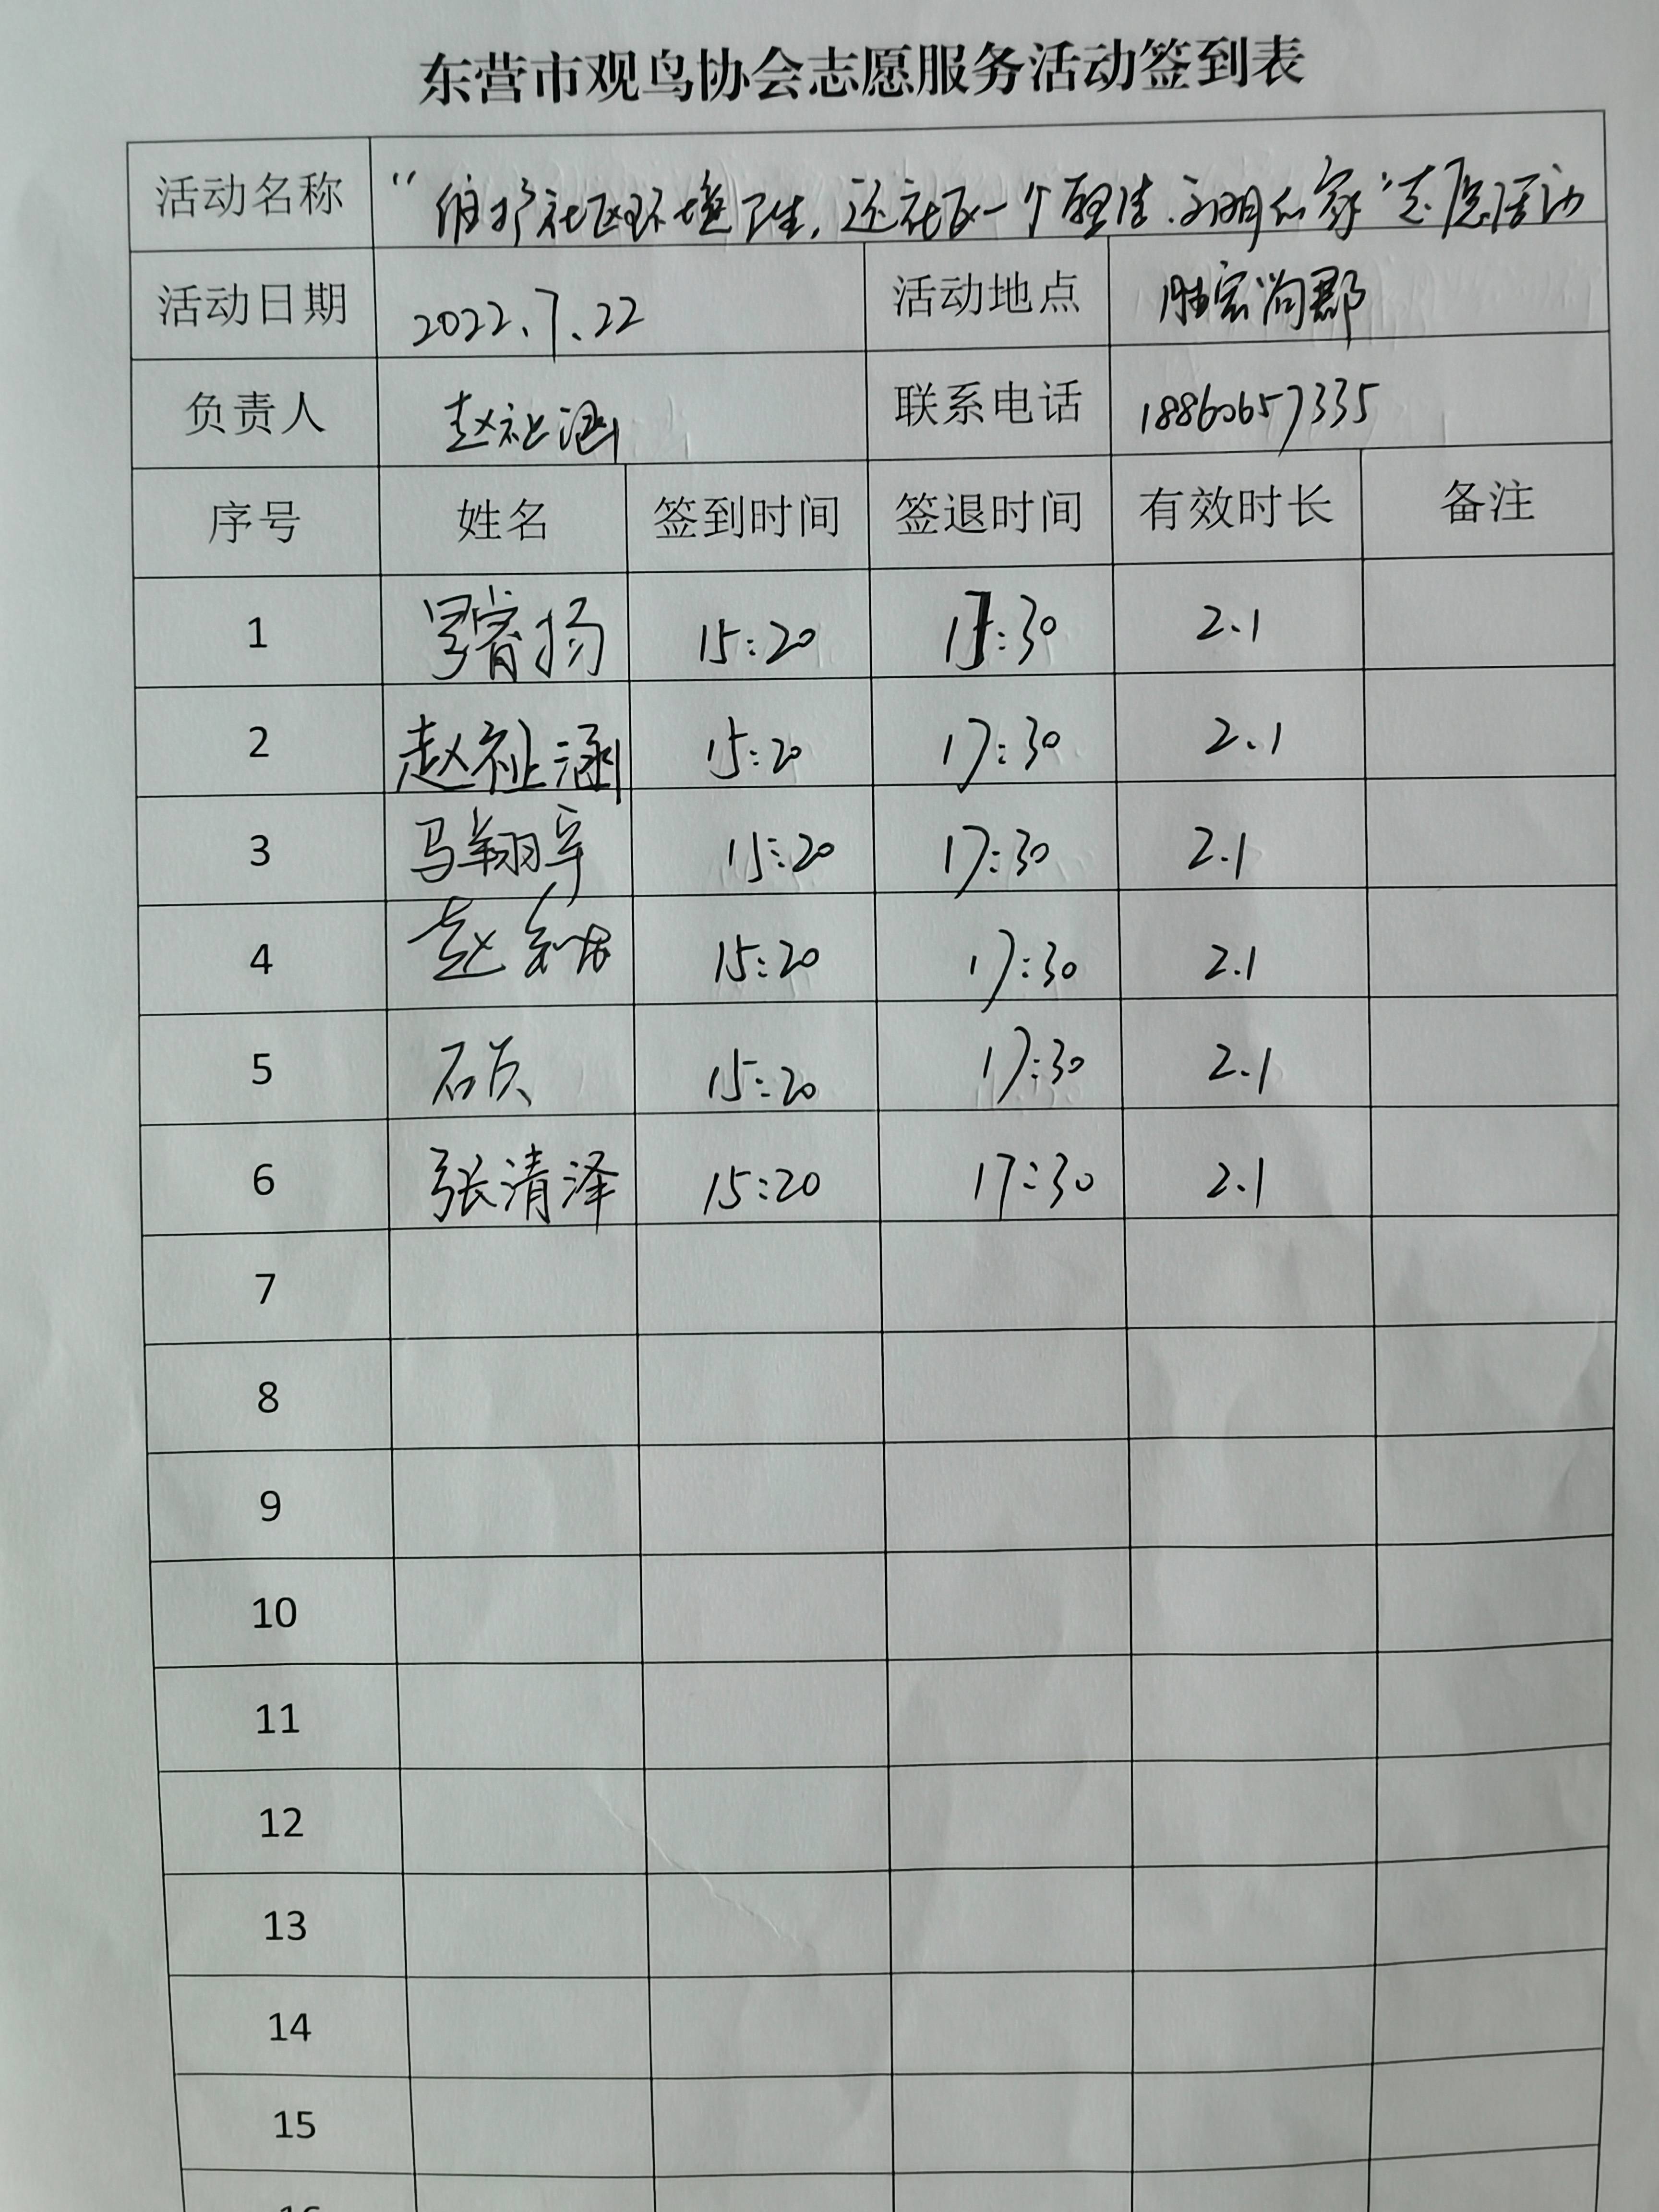 东营市观鸟协会志愿服务活动签到表
活动名称 “维护社区环境卫生，还社区一个整洁、文明的家”志愿活动
活动日期 2022.7.22 活动地点 胜宏尚郡
负责人 赵祉涵 联系电话 18860657335
序号 姓名 签到时间 签退时间 有效时长 备注
1 罗睿扬 15:20 17:30 2.1
2 赵祉涵 15:20 17:30 2.1
3 马翔宇 15:20 17:30 2.1
4 赵 15:20 17:30 2.1
5 石页 15:20 17:30 2.1
6 张清泽 15:20 17:30 2.1
7
8
9
10
11
12
13
14
15
16